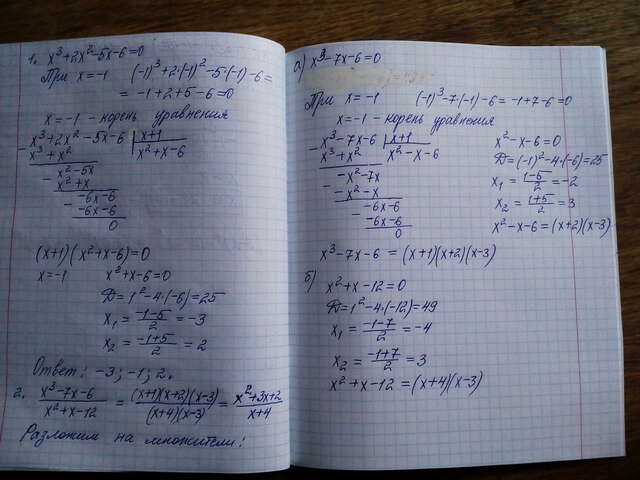 1. x³+2x²-5x-6=0
При x=-1 (-1)³+2·(-1)²-5·(-1)-6=
= -1+2+5-6=0
x=-1 - корень уравнения
x³+2x²-5x-6 | x+1
x³+x² x²+x-6
- x²-5x
x²+x
- -6x-6
-6x-6
0
(x+1)(x²+x-6)=0
x=-1 x²+x-6=0
D=1²-4·(-6)=25
x₁ = (-1-5)/2 = -3
x₂ = (-1+5)/2 = 2
Ответ: -3; -1; 2.
2. (x³-7x-6)/(x²+x-12) = ((x+1)(x+2)(x-3))/((x+4)(x-3)) = (x²+3x+2)/(x+4)
Разложим на множители:
а) x³-7x-6=0
При x=-1 (-1)³-7·(-1)-6=-1+7-6=0
x=-1 - корень уравнения
x³-7x-6 | x+1
x³+x² x²-x-6
- -x²-7x
-x²-x
- -6x-6
-6x-6
0
x²-x-6=0
D=(-1)²-4·(-6)=25
x₁ = (1-5)/2 = -2
x₂ = (1+5)/2 = 3
x²-x-6=(x+2)(x-3)
x³-7x-6 = (x+1)(x+2)(x-3)
б) x²+x-12=0
D=1²-4·(-12)=49
x₁ = (-1-7)/2 = -4
x₂ = (-1+7)/2 = 3
x²+x-12=(x+4)(x-3)